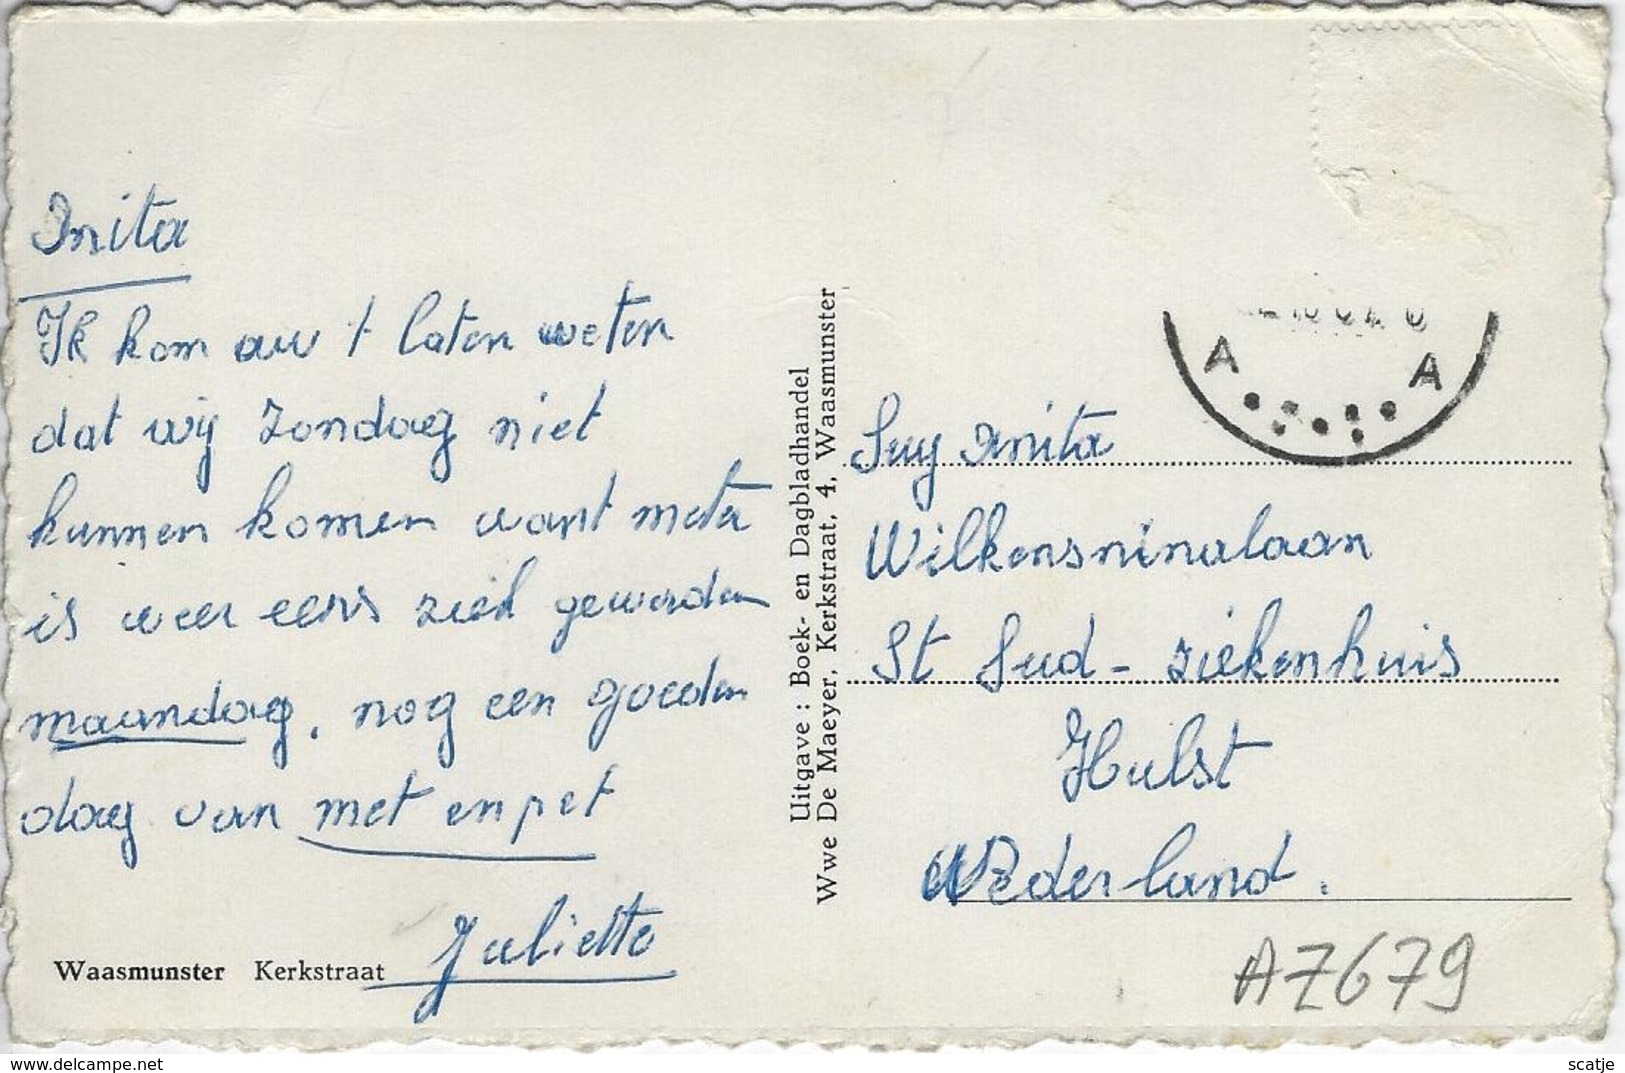 Anita
Ik kom uw t laten weten
dat wij zondag niet
kunnen komen want meter
is weer eens ziek geworden
maandag, nog een goeden
dag van met en pet
Juliette
Waasmunster Kerkstraat
Uitgave : Boek- en Dagbladhandel
Wwe De Maeyer, Kerkstraat, 4, Waasmunster
A A
Suy Anita
St Liduina-ziekenhuis
Hulst
Nederland.
A7679
scatje